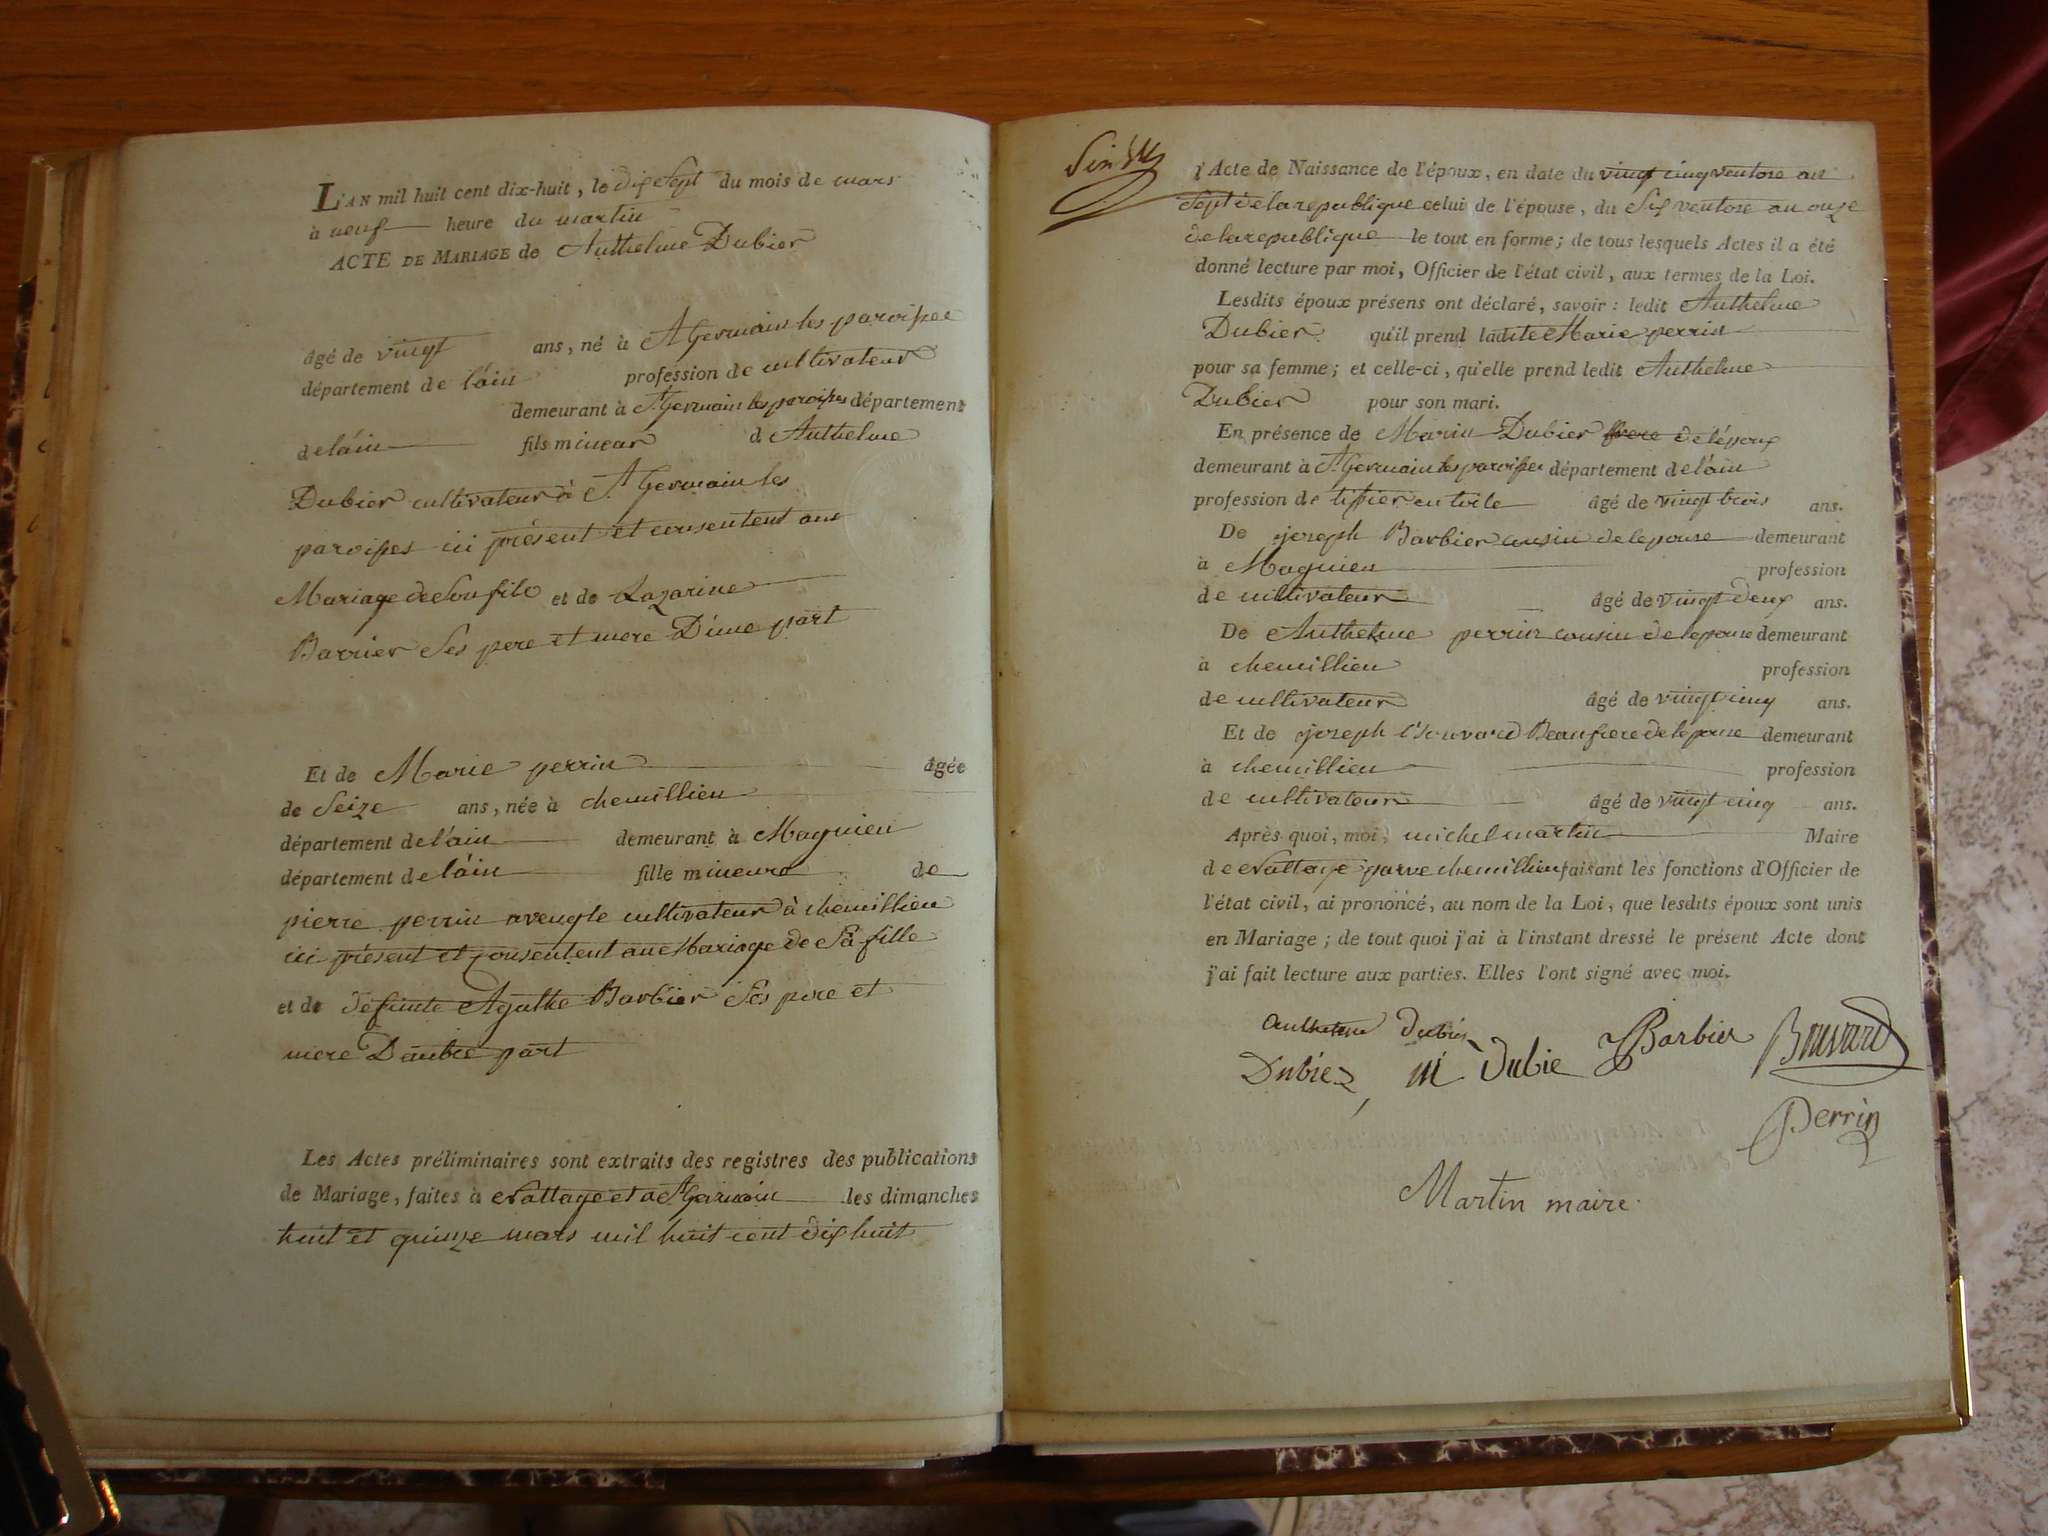 L'AN mil huit cent dix-huit, le dix Sept du mois de mars
à neuf heure du martin
ACTE DE MARIAGE de Anthelme Dubier
âgé de vingt ans, né à St Germain les paroisses
département de l'ain profession de cultivateur
demeurant à St Germain les paroisses département
de láin fils mineur de Anthelme
Dubier cultivateur à St Germain les
paroisses ici présent et consentent au
Mariage de Son fils et de Lazarine
Barrier Ses pere et mere D'une part
Et de Marie perrin âgée
de Seize ans, née à chemillieu
département de láin demeurant à Magnieu
département de láin fille mineure de
pierre perrin aveugle cultivateur à chemillieu
ici présent et consentent au Mariage de Sa fille
et de défunte Agathe Barbier Ses pere et
mere D'autre part
Les Actes préliminaires sont extraits des registres des publications
de Mariage, faites à et a St Germain les dimanches
huit et quinze mars mil huit cent dix huit
l'Acte de Naissance de l'époux, en date du vingt cinq ventose an
Sept de la republique celui de l'épouse, du Six ventose an onze
de la republique le tout en forme; de tous lesquels Actes il a été
donné lecture par moi, Officier de l'état civil, aux termes de la Loi.
Lesdits époux présens ont déclaré, savoir: ledit Anthelme
Dubier qu'il prend ladite Marie perrin
pour sa femme; et celle-ci, qu'elle prend ledit Anthelme
Dubier pour son mari.
En présence de Marin Dubier frere de l'époux
demeurant à St Germain les paroisses département de láin
profession de tissier en toile âgé de vingt trois ans.
De joseph Barbier cousin de lepouse demeurant
à Magnieu profession
de cultivateur âgé de vingt deux ans.
De Anthelme perrin cousin de lepouse demeurant
à chemillieu profession
de cultivateur âgé de vingt cinq ans.
Et de joseph Beaufrere de lepouse demeurant
à chemillieu profession
de cultivateur âgé de vingt cinq ans.
Après quoi, moi, michel martin Maire
de parve chemillieu faisant les fonctions d'Officier de
l'état civil, ai prononcé, au nom de la Loi, que lesdits époux sont unis
en Mariage; de tout quoi j'ai à l'instant dressé le présent Acte dont
j'ai fait lecture aux parties. Elles l'ont signé avec moi.
anthelme Dubier
Dubiez, M Dubie Barbier Bouvard
Perrin
Martin maire.